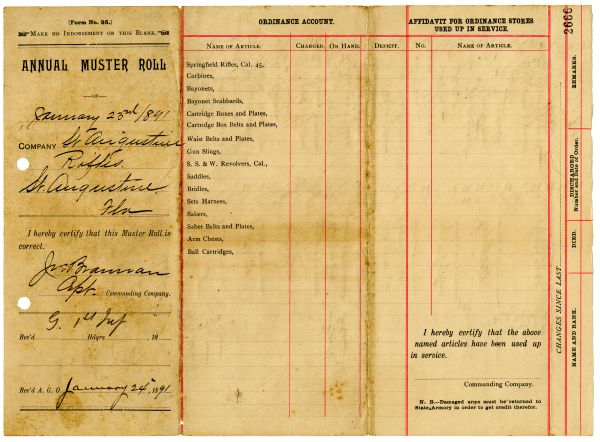 (Form No. 95.)
MAKE NO INDORSEMENT ON THIS BLANK.
ANNUAL MUSTER ROLL
—OF—
January 23rd 1891
COMPANY St Augustine
Rifles
St. Augustine,
Fla
I hereby certify that this Muster Roll is
correct.
Jno. Brannan
Capt. Commanding Company.
G. 1st Inf
Rec'd Hdqrs 18
Rec'd A. G. O. January 24", 1891.
ORDINANCE ACCOUNT.
NAME OF ARTICLE. CHARGED. ON HAND. DEFICIT.
Springfield Rifles, Cal. 45,
Carbines,
Bayonets,
Bayonet Scabbards,
Cartridge Boxes and Plates,
Cartridge Box Belts and Plates,
Waist Belts and Plates,
Gun Slings,
S. S. & W. Revolvers, Cal.,
Saddles,
Bridles,
Sets Harness,
Sabers,
Saber Belts and Plates,
Arm Chests,
Ball Cartridges,
AFFIDAVIT FOR ORDINANCE STORES
USED UP IN SERVICE.
NO. NAME OF ARTICLE.
I hereby certify that the above
named articles have been used up
in service.
Commanding Company.
N. B.—Damaged arms must be returned to
State Armory in order to get credit therefor.
2666
CHANGES SINCE LAST
REMARKS.
DISCHARGED
Number and Date of Order.
DIED.
NAME AND RANK.